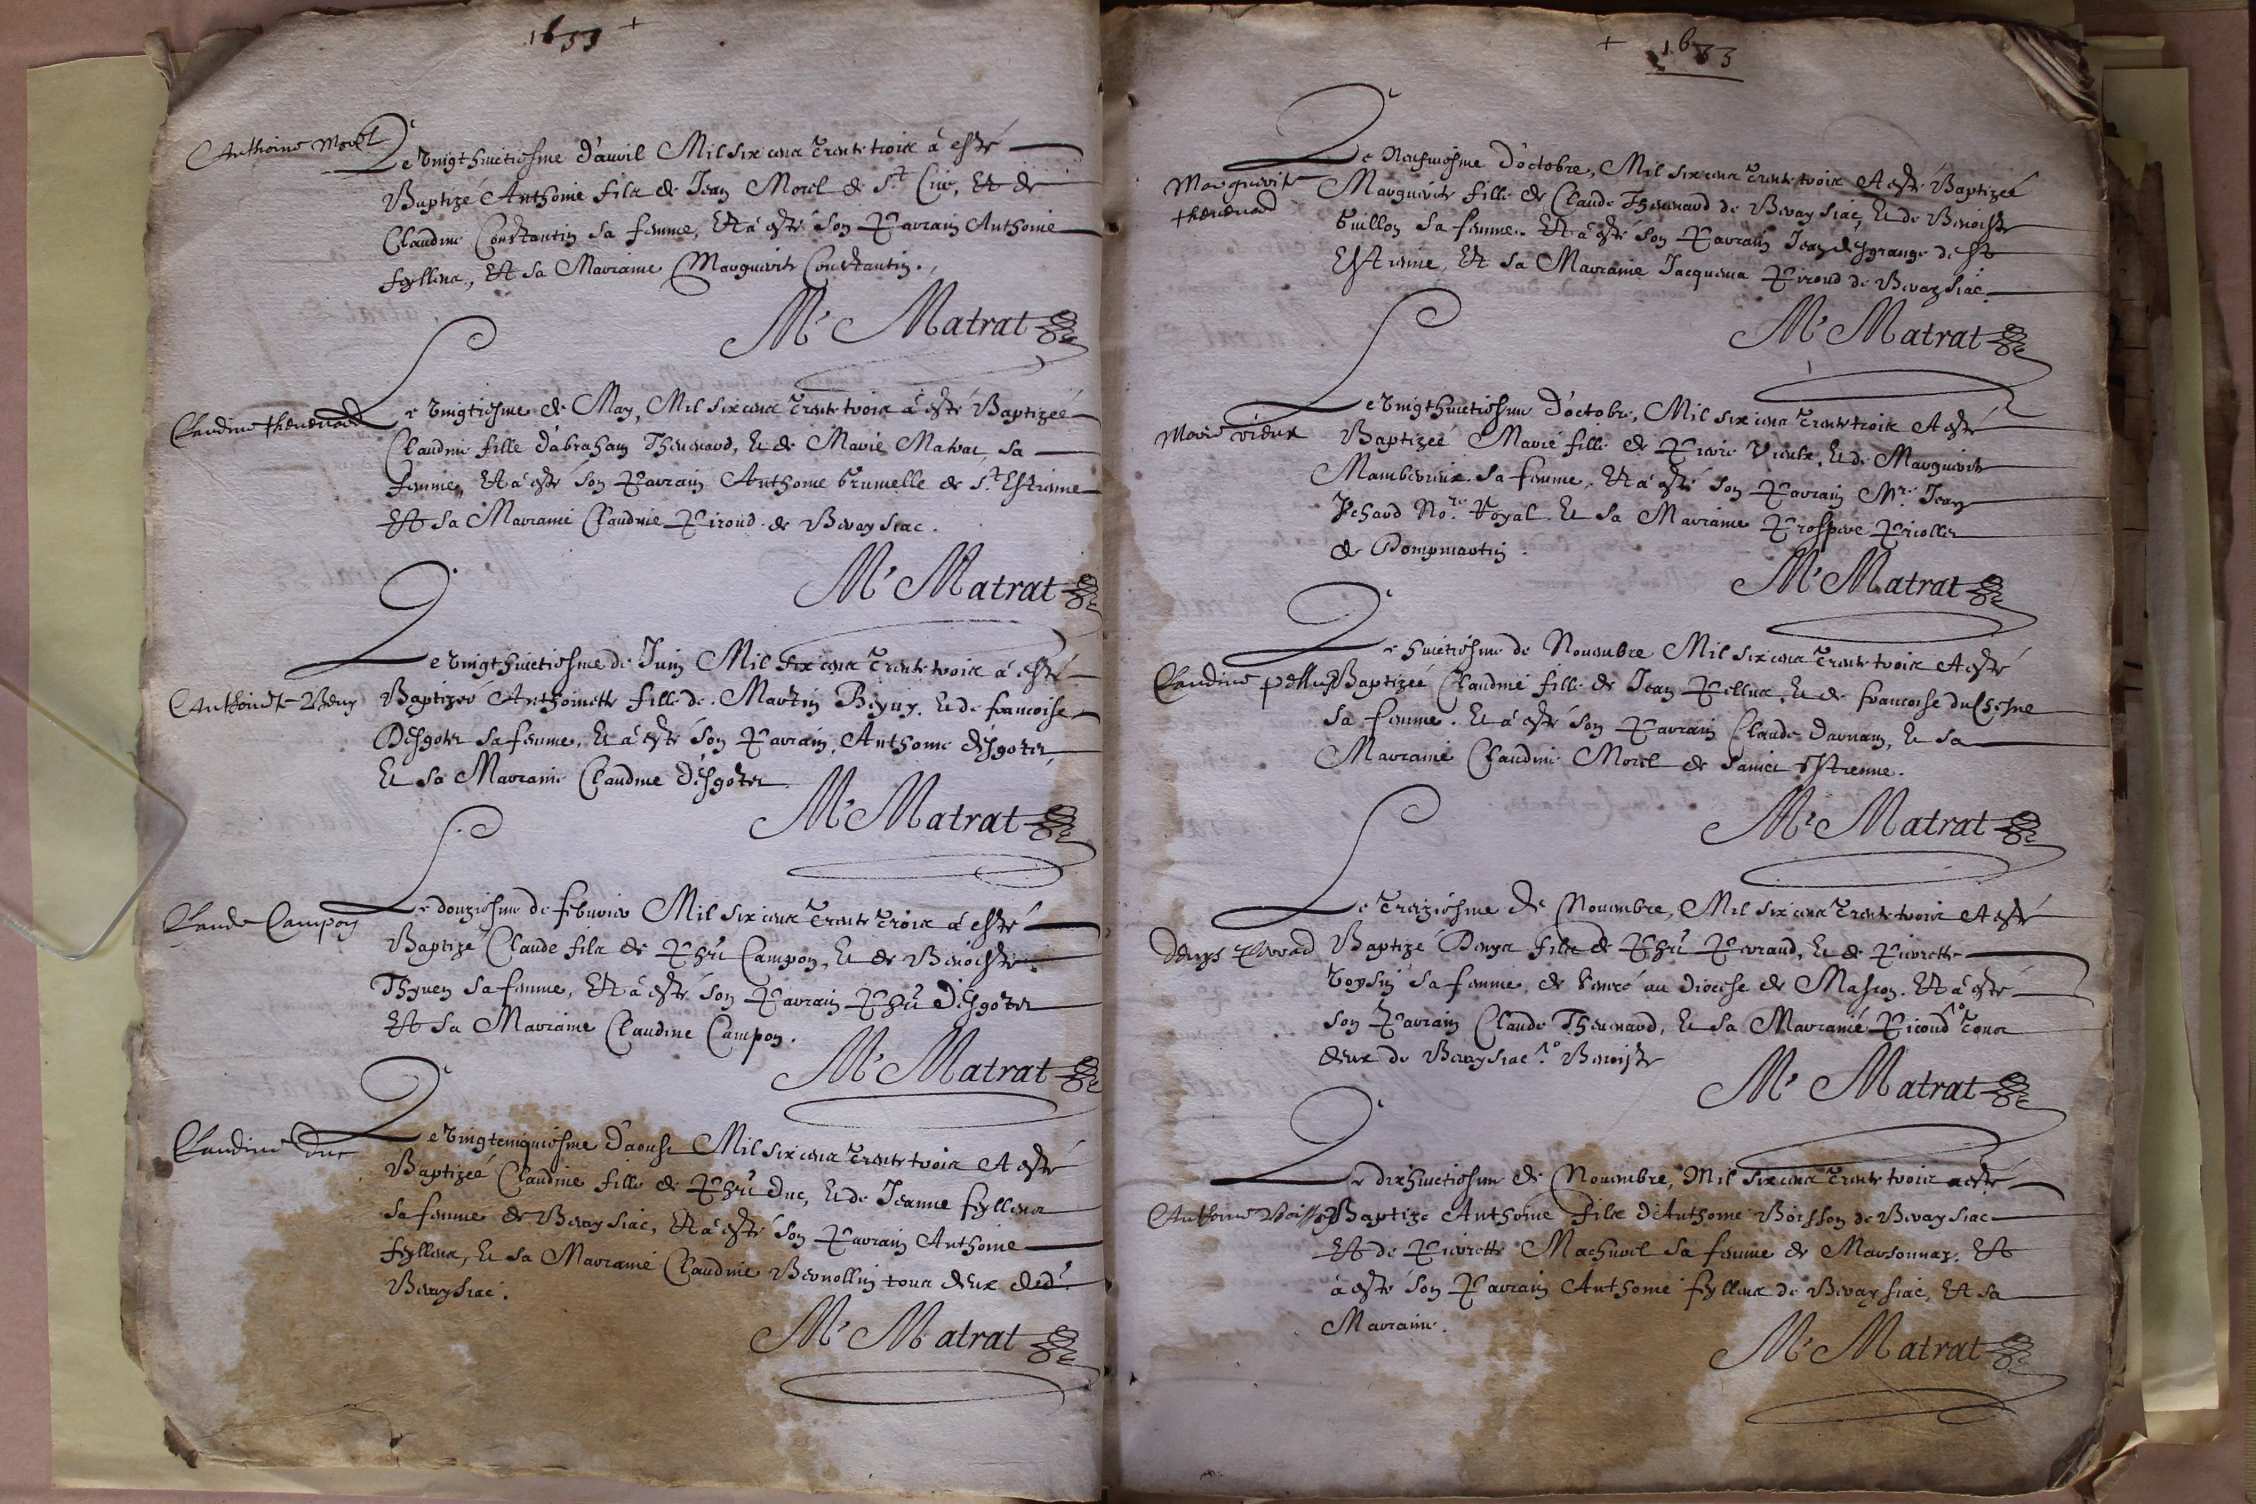 1633
Anthoine Morel
Le vingthuictiesme d'auril Mil six cens trente trois à esté
Baptizé Anthoine filz de Jean Morel de St Cire, Et de
Claudine Constantin sa femme, Et a esté son Parrain Anthoine
feyllens, Et sa Marraine Marguerite Constantin.
Mr Matrat
Claudine thevenard
Le vingtiesme de May, Mil six cens trente trois à esté Baptizeé
Claudine fille d'abraham Thevenard, Et de Marie Matrat, sa
femme, Et a esté son Parrain Anthoine brunelle de St Estienne
Et sa Marraine Claudine Piroud de Bevaysiac.
Mr Matrat
Le vingthuictiesme de Juin Mil six cens trente trois à esté
Anthoinette Beny
Baptizeé Anthoinette fille de Martin Beyny, Et de francoise
Desgoter sa femme, Et a esté son Parrain Anthoine desgoter,
Et sa Marraine Claudine desgoter
Mr Matrat
Claude Campon
Le douziesme de febvrier Mil six cens trente trois à esté
Baptizé Claude filz de Phi Campon, Et de Benoiste
Thyven sa femme, Et a esté son Parrain Phi desgoter
Et sa Marraine Claudine Campon.
Mr Matrat
Claudine duc
Le vingtcinquiesme d'aoust Mil six cens trente trois A esté
Baptizeé Claudine fille de Phi duc, Et de Jeanne feyllens
sa femme de Bevaysiac, Et a esté son Parrain Anthoine
feyllens, Et sa Marraine Claudine Bernollin tous deux dud.
Bevaysiac.
Mr Matrat
1633
Le Neufviesme d'octobre, Mil six cens trente trois A esté Baptizeé
Marguerite
thevenard
Marguerite fille de Claude Thevenard de Bevaysiac, Et de Benoiste
Guillon sa femme. Et a esté son Parrain Jean desgrange de St
Estienne, Et sa Marraine Jacquema Piroud de Bevaysiac.
Mr Matrat
Le vingthuictiesme d'octobre, Mil six cens trente trois A esté
Marie vieux
Baptizeé Marie fille de Pierre Vieulx, Et de Marguerite
sa femme, Et a esté son Parrain Mre Jean
No.re Royal, Et sa Marraine Prospere
de Dompmartin.
Mr Matrat
Le huictiesme de Novembre Mil six cens trente trois A esté
Claudine pellus
Baptizeé Claudine fille de Jean Pellus, Et de francoise duchesne
sa femme. Et a esté son Parrain Claude darnam, Et sa
Marraine Claudine Morel de sainct Estienne.
Mr Matrat
Le treiziesme de Novembre, Mil six cens trente trois A esté
Denys peroud
Baptizé Denys filz de Phi Peraud, Et de Pierrette
Voysin sa femme, de au diocese de Mascon. Et a esté
son Parrain Claude Thevenard, Et sa Marraine Picoud tous
deux de Bevaysiac. Benoiste
Mr Matrat
Le dixhuictiesme de Novembre, Mil six cens trente trois a esté
Anthoine Boisson
Baptizé Anthoine filz d'Anthoine Boisson de Bevaysiac
Et de Pierrette Machurel sa femme de Marsonnax. Et
a esté son Parrain Anthoine feyllens de Bevaysiac, Et sa
Marraine.
Mr Matrat